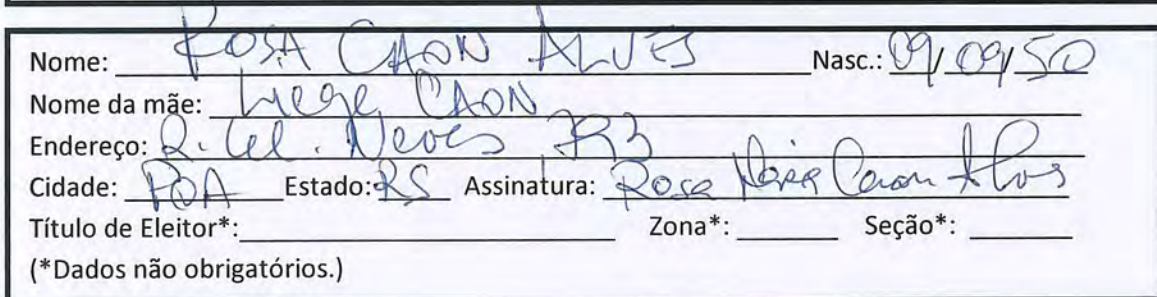 Nome: ROSA CAON ALVES Nasc.: 09/09/50
Nome da mãe: Liege CAON
Endereço: R. Cel. Neves 373
Cidade: POA Estado: RS Assinatura: Rosa Maria Caon Alves
Título de Eleitor*: Zona*: Seção*:
(*Dados não obrigatórios.)